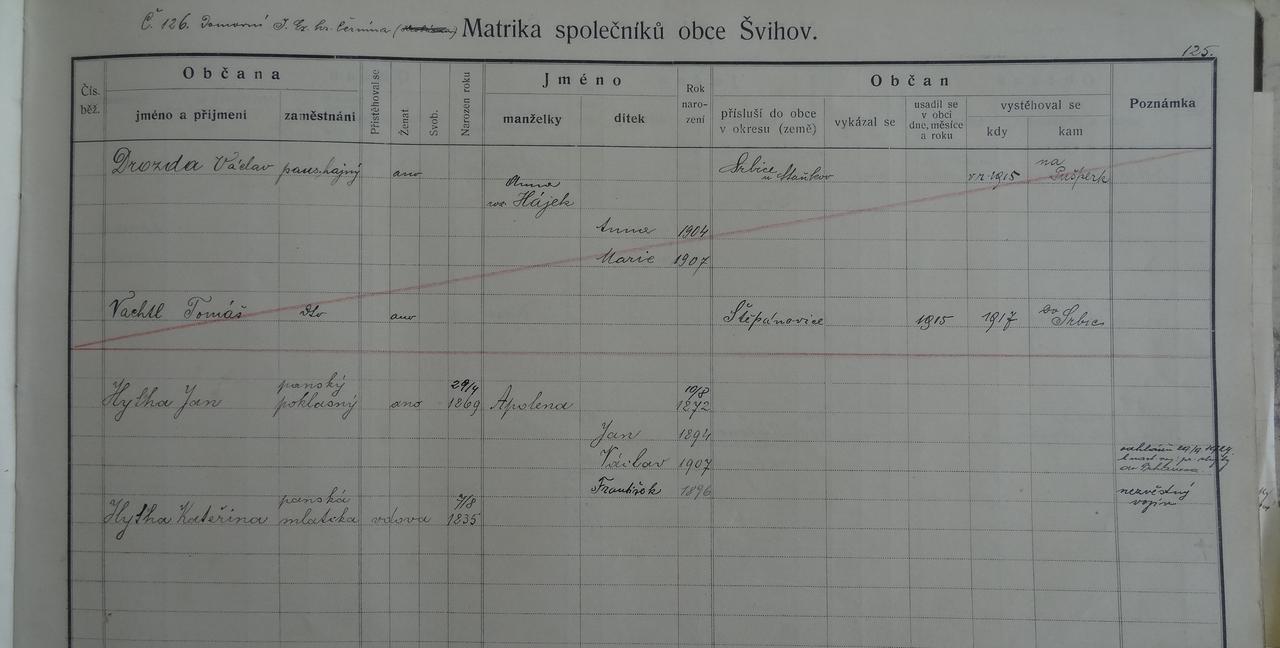 Č. 126. Matrika společníků obce Švihov.
125.
Občana Jméno Občan
Čís. běž. jméno a přijmení zaměstnání Přistěhoval se Ženat Svob. Narozen roku manželky dítek Rok narození přísluší do obce v okresu (země) vykázal se usadil se v obci dne, měsíce a roku vystěhoval se kdy kam Poznámka
Drozda Václav ano Srbice u Staňkov v r. 1915 na Pušperk
Anna
roz. Hájek
Anna 1904
Marie 1907
Vachtl Tomáš dto ano Štěpánovice 1915 1917 do Srbic
panský 29/4 10/8
Hytha Jan poklasný ano 1869 Apolena 1872
Jan 1894
Václav 1907
František 1896 nezvěstný
vojín
panská 7/8
Hytha Kateřina mlatcka vdova 1835